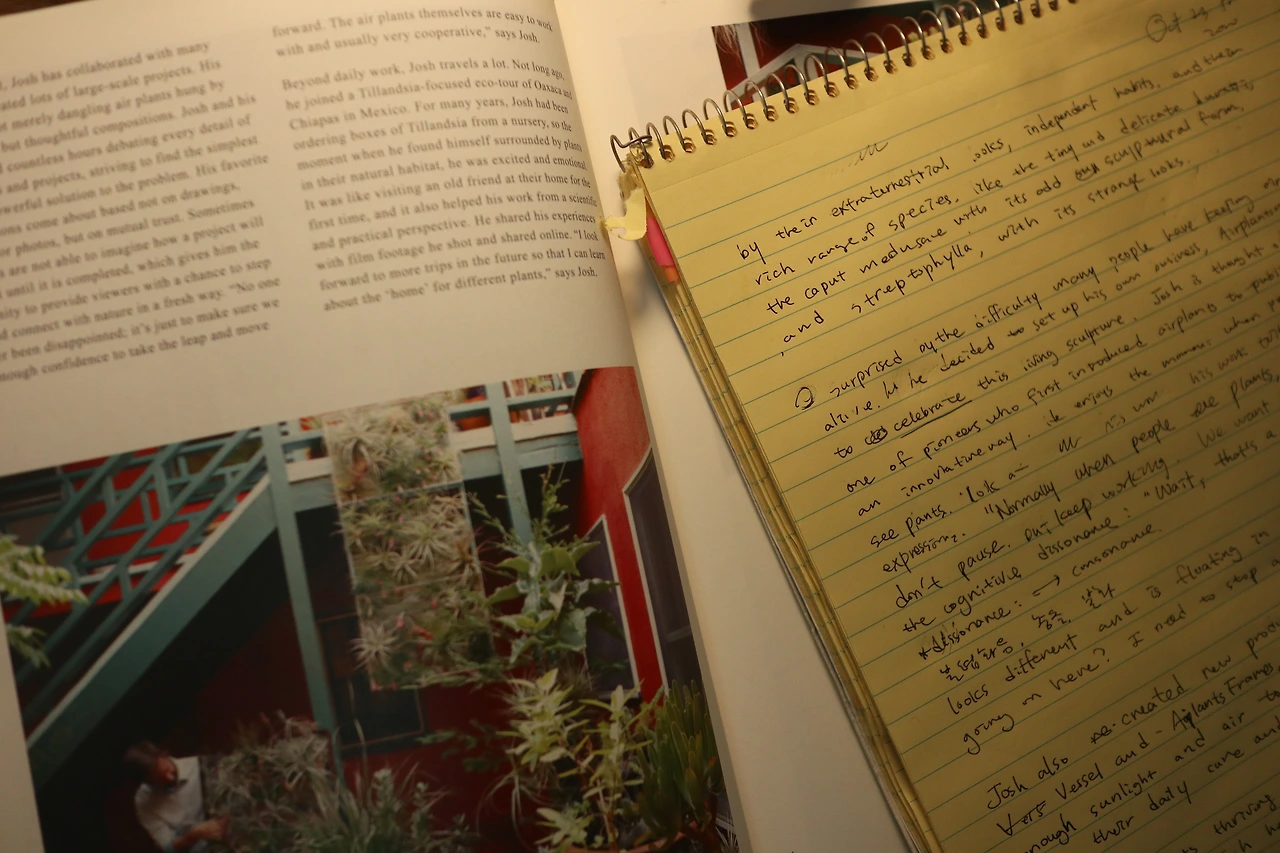 , Josh has collaborated with many
ated lots of large-scale projects. His
t merely dangling air plants hung by
but thoughtful compositions. Josh and his
countless hours debating every detail of
and projects, striving to find the simplest
werful solution to the problem. His favorite
ons come about based not on drawings,
r photos, but on mutual trust. Sometimes
s are not able to imagine how a project will
until it is completed, which gives him the
nity to provide viewers with a chance to step
d connect with nature in a fresh way. “No one
r been disappointed; it's just to make sure we
nough confidence to take the leap and move
forward. The air plants themselves are easy to work
with and usually very cooperative,” says Josh.
Beyond daily work, Josh travels a lot. Not long ago,
he joined a Tillandsia-focused eco-tour of Oaxaca and
Chiapas in Mexico. For many years, Josh had been
ordering boxes of Tillandsia from a nursery, so the
moment when he found himself surrounded by plants
in their natural habitat, he was excited and emotional.
It was like visiting an old friend at their home for the
first time, and it also helped his work from a scientific
and practical perspective. He shared his experiences
with film footage he shot and shared online. “I look
forward to more trips in the future so that I can learn
about the ‘home’ for different plants,” says Josh.
by their extraterrestrial looks, independent habits, and their
rich range of species, like the tiny and delicate
the caput medusae with its odd sculptural form,
and streptophylla, with its strange looks.
surprised by the difficulty many people have keeping
alive. he decided to set up his own business, Airplantman
to celebrate this living sculpture. Josh is thought
one of pioneers who first introduced airplants to public
an innovative way. He enjoys the when
see plants. his work
expression. "Normally when people see plants,
don't pause. but keep working. We want
the cognitive dissonance: "Wait, that's a
*dissonance: → consonance.
불협화음, 불일치
looks different and is floating in
going on here? I need to stop a
Josh also created new prod
Vessel and Airplants Frames
nough sunlight and air to
their daily care and
thriving